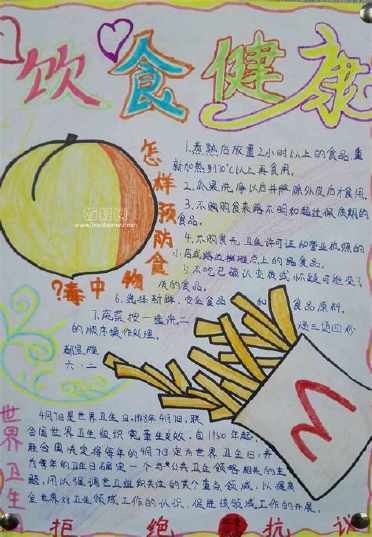 饮食健康
怎样预防食物中毒?
1.煮熟后放置2小时以上的食品,重
新加热到70℃以上再食用。
2.瓜果洗净以后并除外皮后才食用。
3.不购食来路不明和超过保质期的
食品。
4.不购食无卫生许可证和营业执照的
小店或路边摊点上的食品。
5.不吃已确认变质或怀疑可能变了
质的食品。
6.选择新鲜、安全食品和食品原料。
7.蔬菜按一洗二
的顺序操作处理。
六·二
世界卫生
4月7日是世界卫生日,1948年4月7日,联
合国世界卫生组织宪章生效,自1950年起,
联合国决定将每年的4月7日定为世界卫生日,并
为每年的卫生日确定一个与公共卫生领域相关的主
题,用以强调世卫组织关注的某个重点领域,以提高
全世界对卫生领域工作的认识,促进该领域工作的开展。
拒绝 抗议